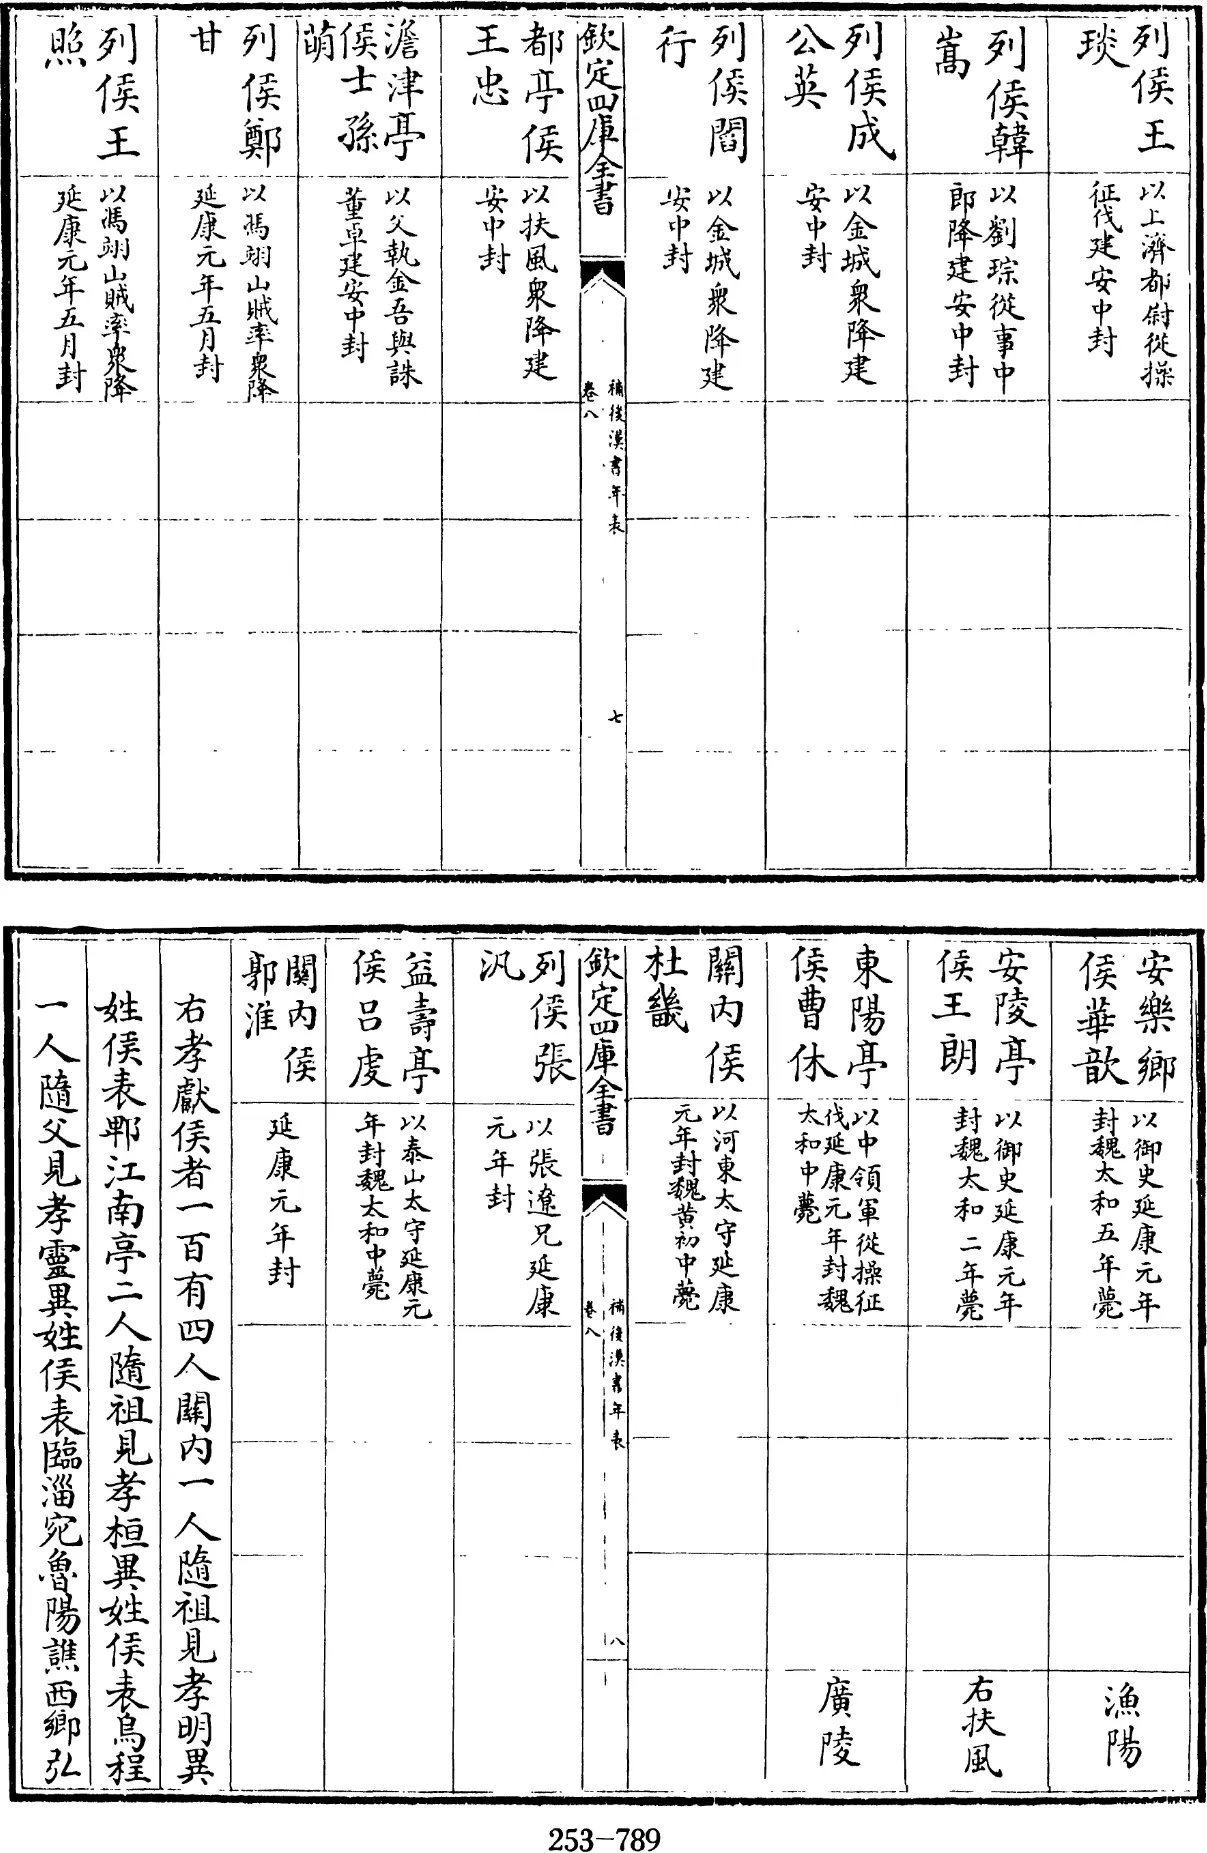 列侯王
琰
以上濟都尉從操
征伐建安中封
列侯韓
嵩
以劉琮從事中
郎降建安中封
列侯成
公英
以金城衆降建
安中封
列侯閻
行
以金城衆降建
安中封
欽定四庫全書
補後漢書年表
卷八
七
都亭侯
王忠
以扶風衆降建
安中封
澹津亭
侯士孫
萌
以父執金吾與誅
董卓建安中封
列侯鄭
甘
以馮翊山賊率衆降
延康元年五月封
列侯王
照
以馮翊山賊率衆降
延康元年五月封
安樂鄉
侯華歆
以御史延康元年
封魏太和五年薨
漁陽
安陵亭
侯王朗
以御史延康元年
封魏太和二年薨
右扶風
東陽亭
侯曹休
以中領軍從操征
伐延康元年封魏
太和中薨
廣陵
關內侯
杜畿
以河東太守延康
元年封魏黃初中薨
欽定四庫全書
補後漢書年表
卷八
八
列侯張
汎
以張遼兄延康
元年封
益壽亭
侯呂虔
以泰山太守延康元
年封魏太和中薨
關內侯
郭淮
延康元年封
右孝獻侯者一百有四人關內一人隨祖見孝明異
姓侯表鄳江南亭二人隨祖見孝桓異姓侯表烏程
一人隨父見孝靈異姓侯表臨淄宛魯陽譙西鄉弘
253-789